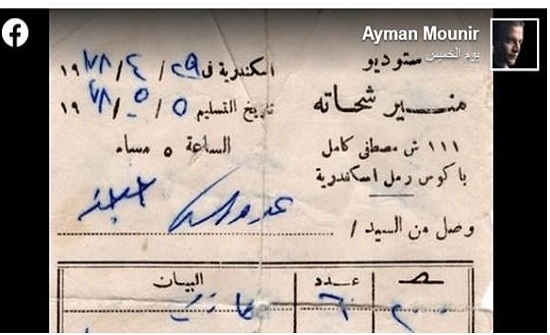 Ayman Mounir
يوم الخميس
ستوديو
منير شحاته
١١١ ش مصطفى كامل
باكوس رمل اسكندرية
اسكندرية في ٢٩ / ٤ / ١٩٧٨
تاريخ التسليم ٥ / ٥ / ١٩٧٨
الساعة ٥ مساء
وصل من السيد /
البيان عدد
٦